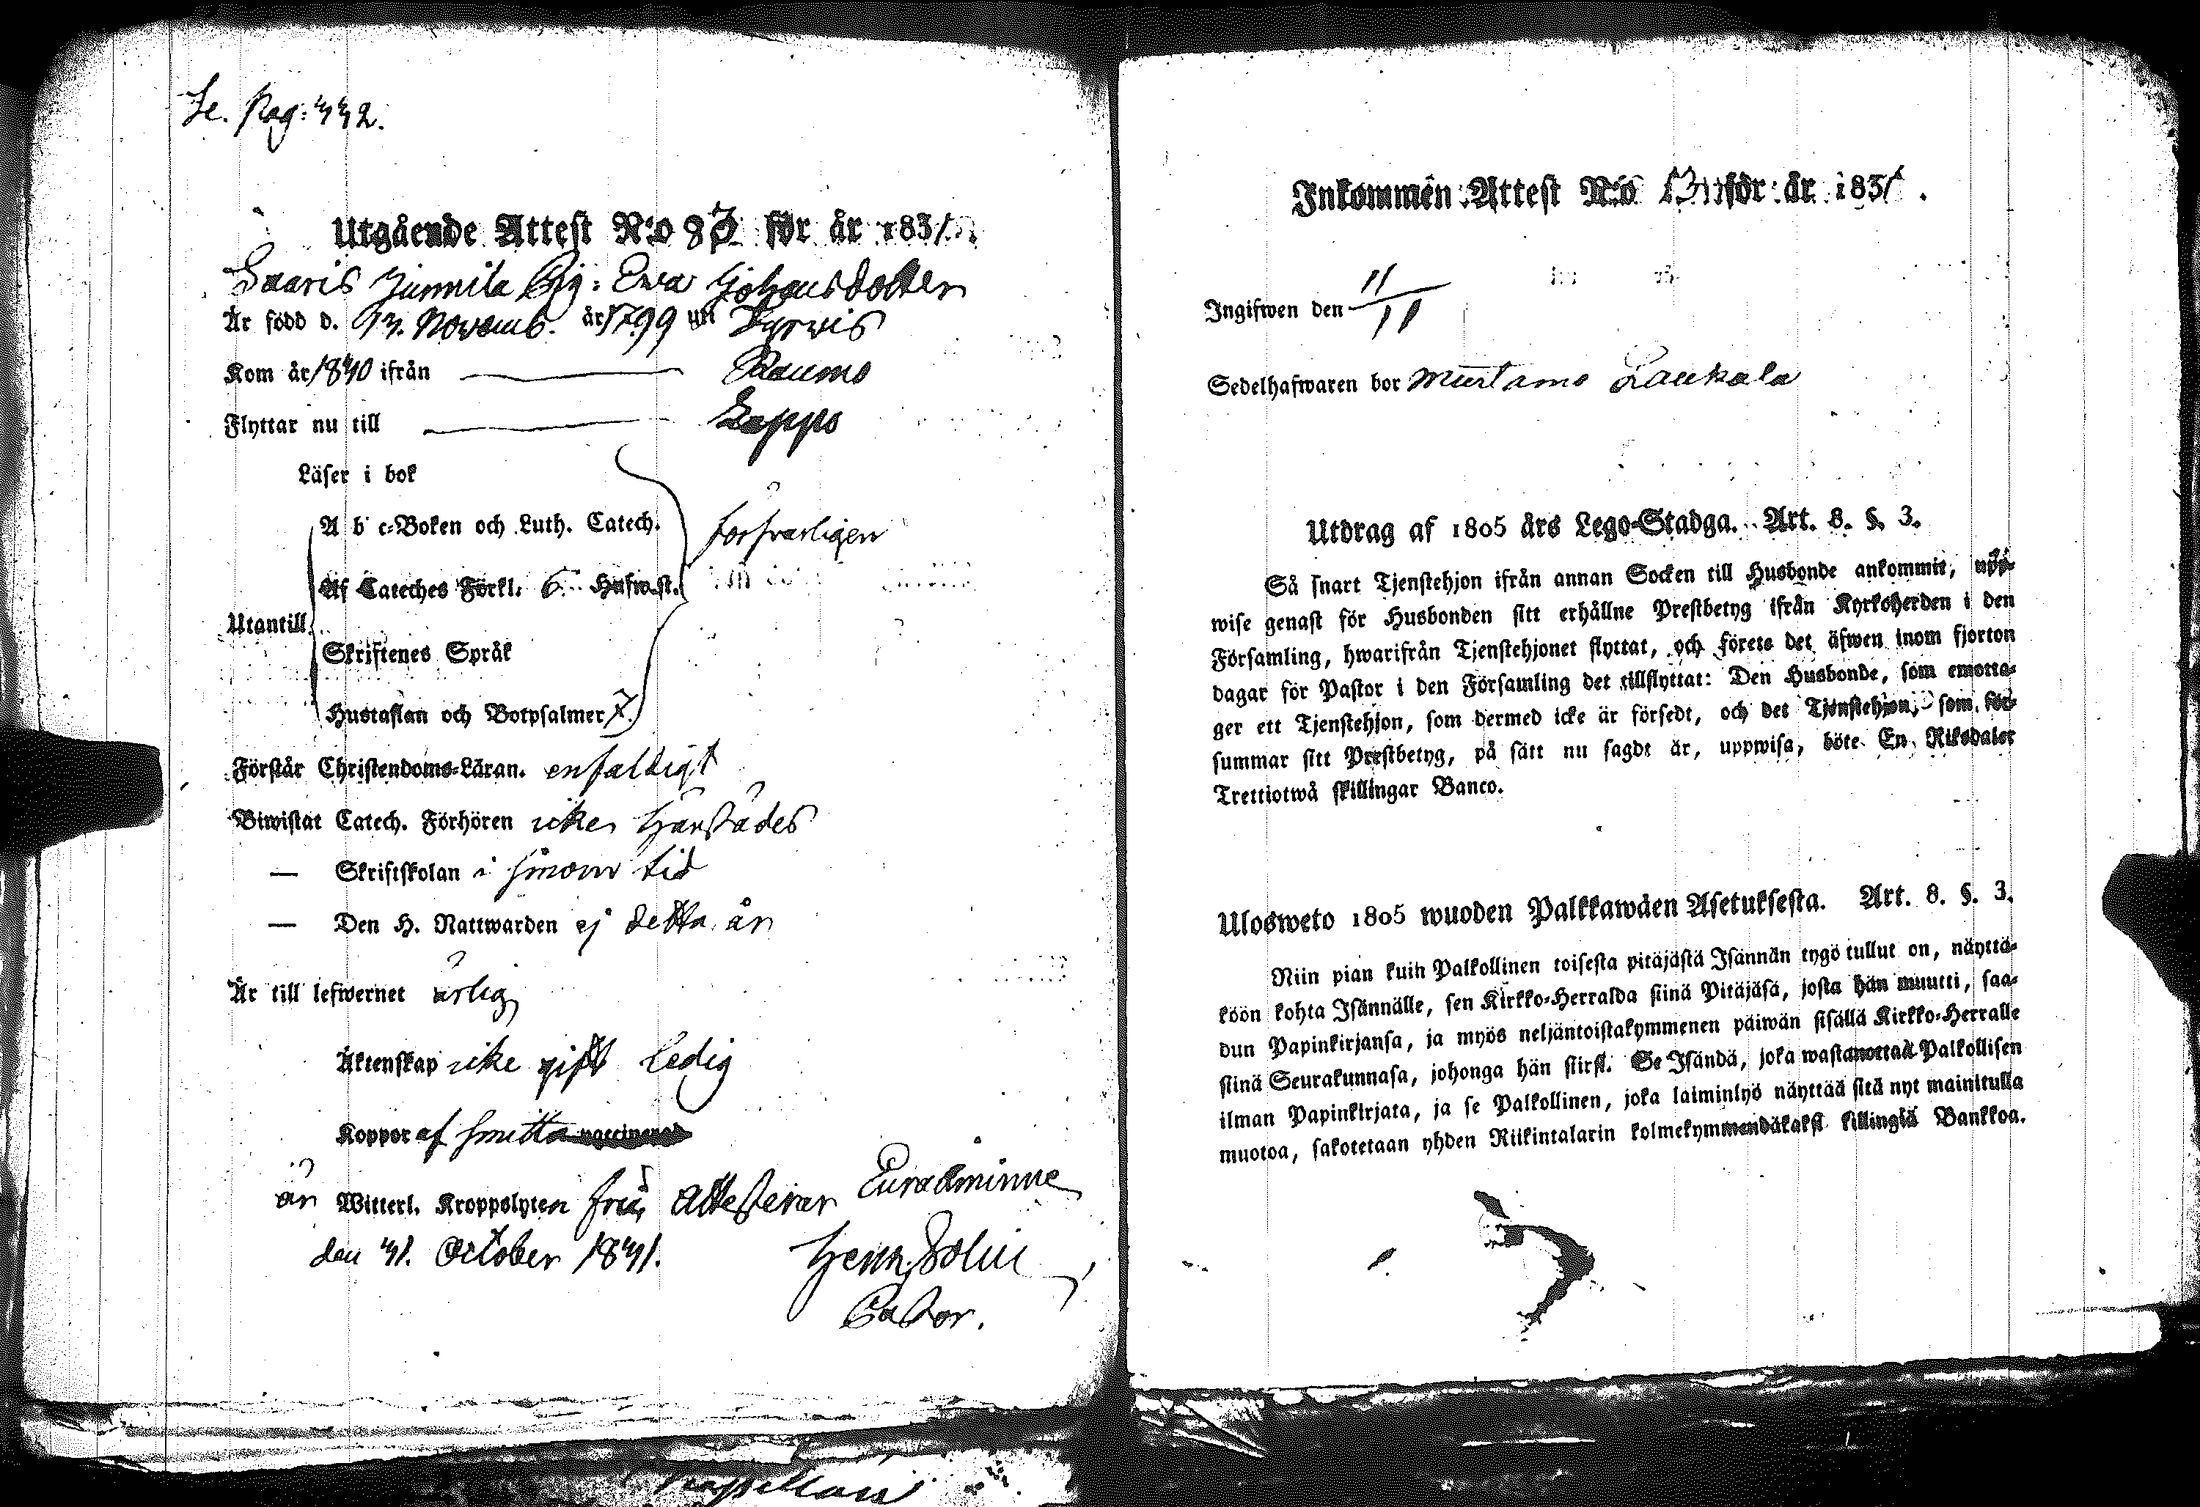 Se. Pag: 332.
Utgående Attest N:o 87 för år 1831.
Saaris Junnila Pig: Ewa Johansdotter
Är född d. 13. Novemb. år 1799 uti Tyrvis
Kom år 1830 ifrån Raumo
Flyttar nu till Lappo
Läser i bok
A b c-Boken och Luth. Catech. försvarligen
Af Cateches Förkl. 6 Hufw.st.
Utantill
Skriftenes Språk
Hustaflan och Botpsalmer 7.
Förstår Christendoms-Läran. enfaldigt
Biwistat Catech. Förhören icke härstädes
— Skriftskolan i sinom tid
— Den H. Nattwarden ej detta år
Är till lefwernet ärlig
Äktenskap icke gift ledig
Koppor af smitta vaccinerad
är Witterl. Kroppslyten fri, Attesterar Euraåminne
den 31. October 1831.
Pastor.
Inkommen Attest N:o för år 1831.
Ingifwen den 11/11
Sedelhafwaren bor Murtamo Laukala
Utdrag af 1805 års Lego-Stadga. Art. 8. §. 3.
Så snart Tjenstehjon ifrån annan Socken till Husbonde ankommit, upp-
wise genast för Husbonden sitt erhållne Prestbetyg ifrån Kyrkoherden i den
Församling, hwarifrån Tjenstehjonet flyttat, och förete det äfwen inom fjorton
dagar för Pastor i den Församling det tillflyttat: Den Husbonde, som emotta-
ger ett Tjenstehjon, som dermed icke är försedt, och det Tjenstehjon, som för-
summar sitt Prestbetyg, på sätt nu sagdt är, uppwisa, böte En Riksdaler
Trettiotwå skillingar Banco.
Ulosweto 1805 wuoden Palkkawäen Asetuksesta. Art. 8. §. 3.
Niin pian kuin Palkollinen toisesta pitäjästä Isännän tygö tullut on, näyttä-
köön kohta Isännälle, sen Kirkko-Herralda siinä Pitäjäsä, josta hän muutti, saa-
dun Papinkirjansa, ja myös neljäntoistakymmenen päiwän sisällä Kirkko-Herralle
siinä Seurakunnasa, johonga hän siirsi. Se Isändä, joka wastanottaa Palkollisen
ilman Papinkirjata, ja se Palkollinen, joka laiminlyö näyttää sitä nyt mainitulla
muotoa, sakotetaan yhden Riikintalarin kolmekymmendäkaksi killingiä Bankkoa.